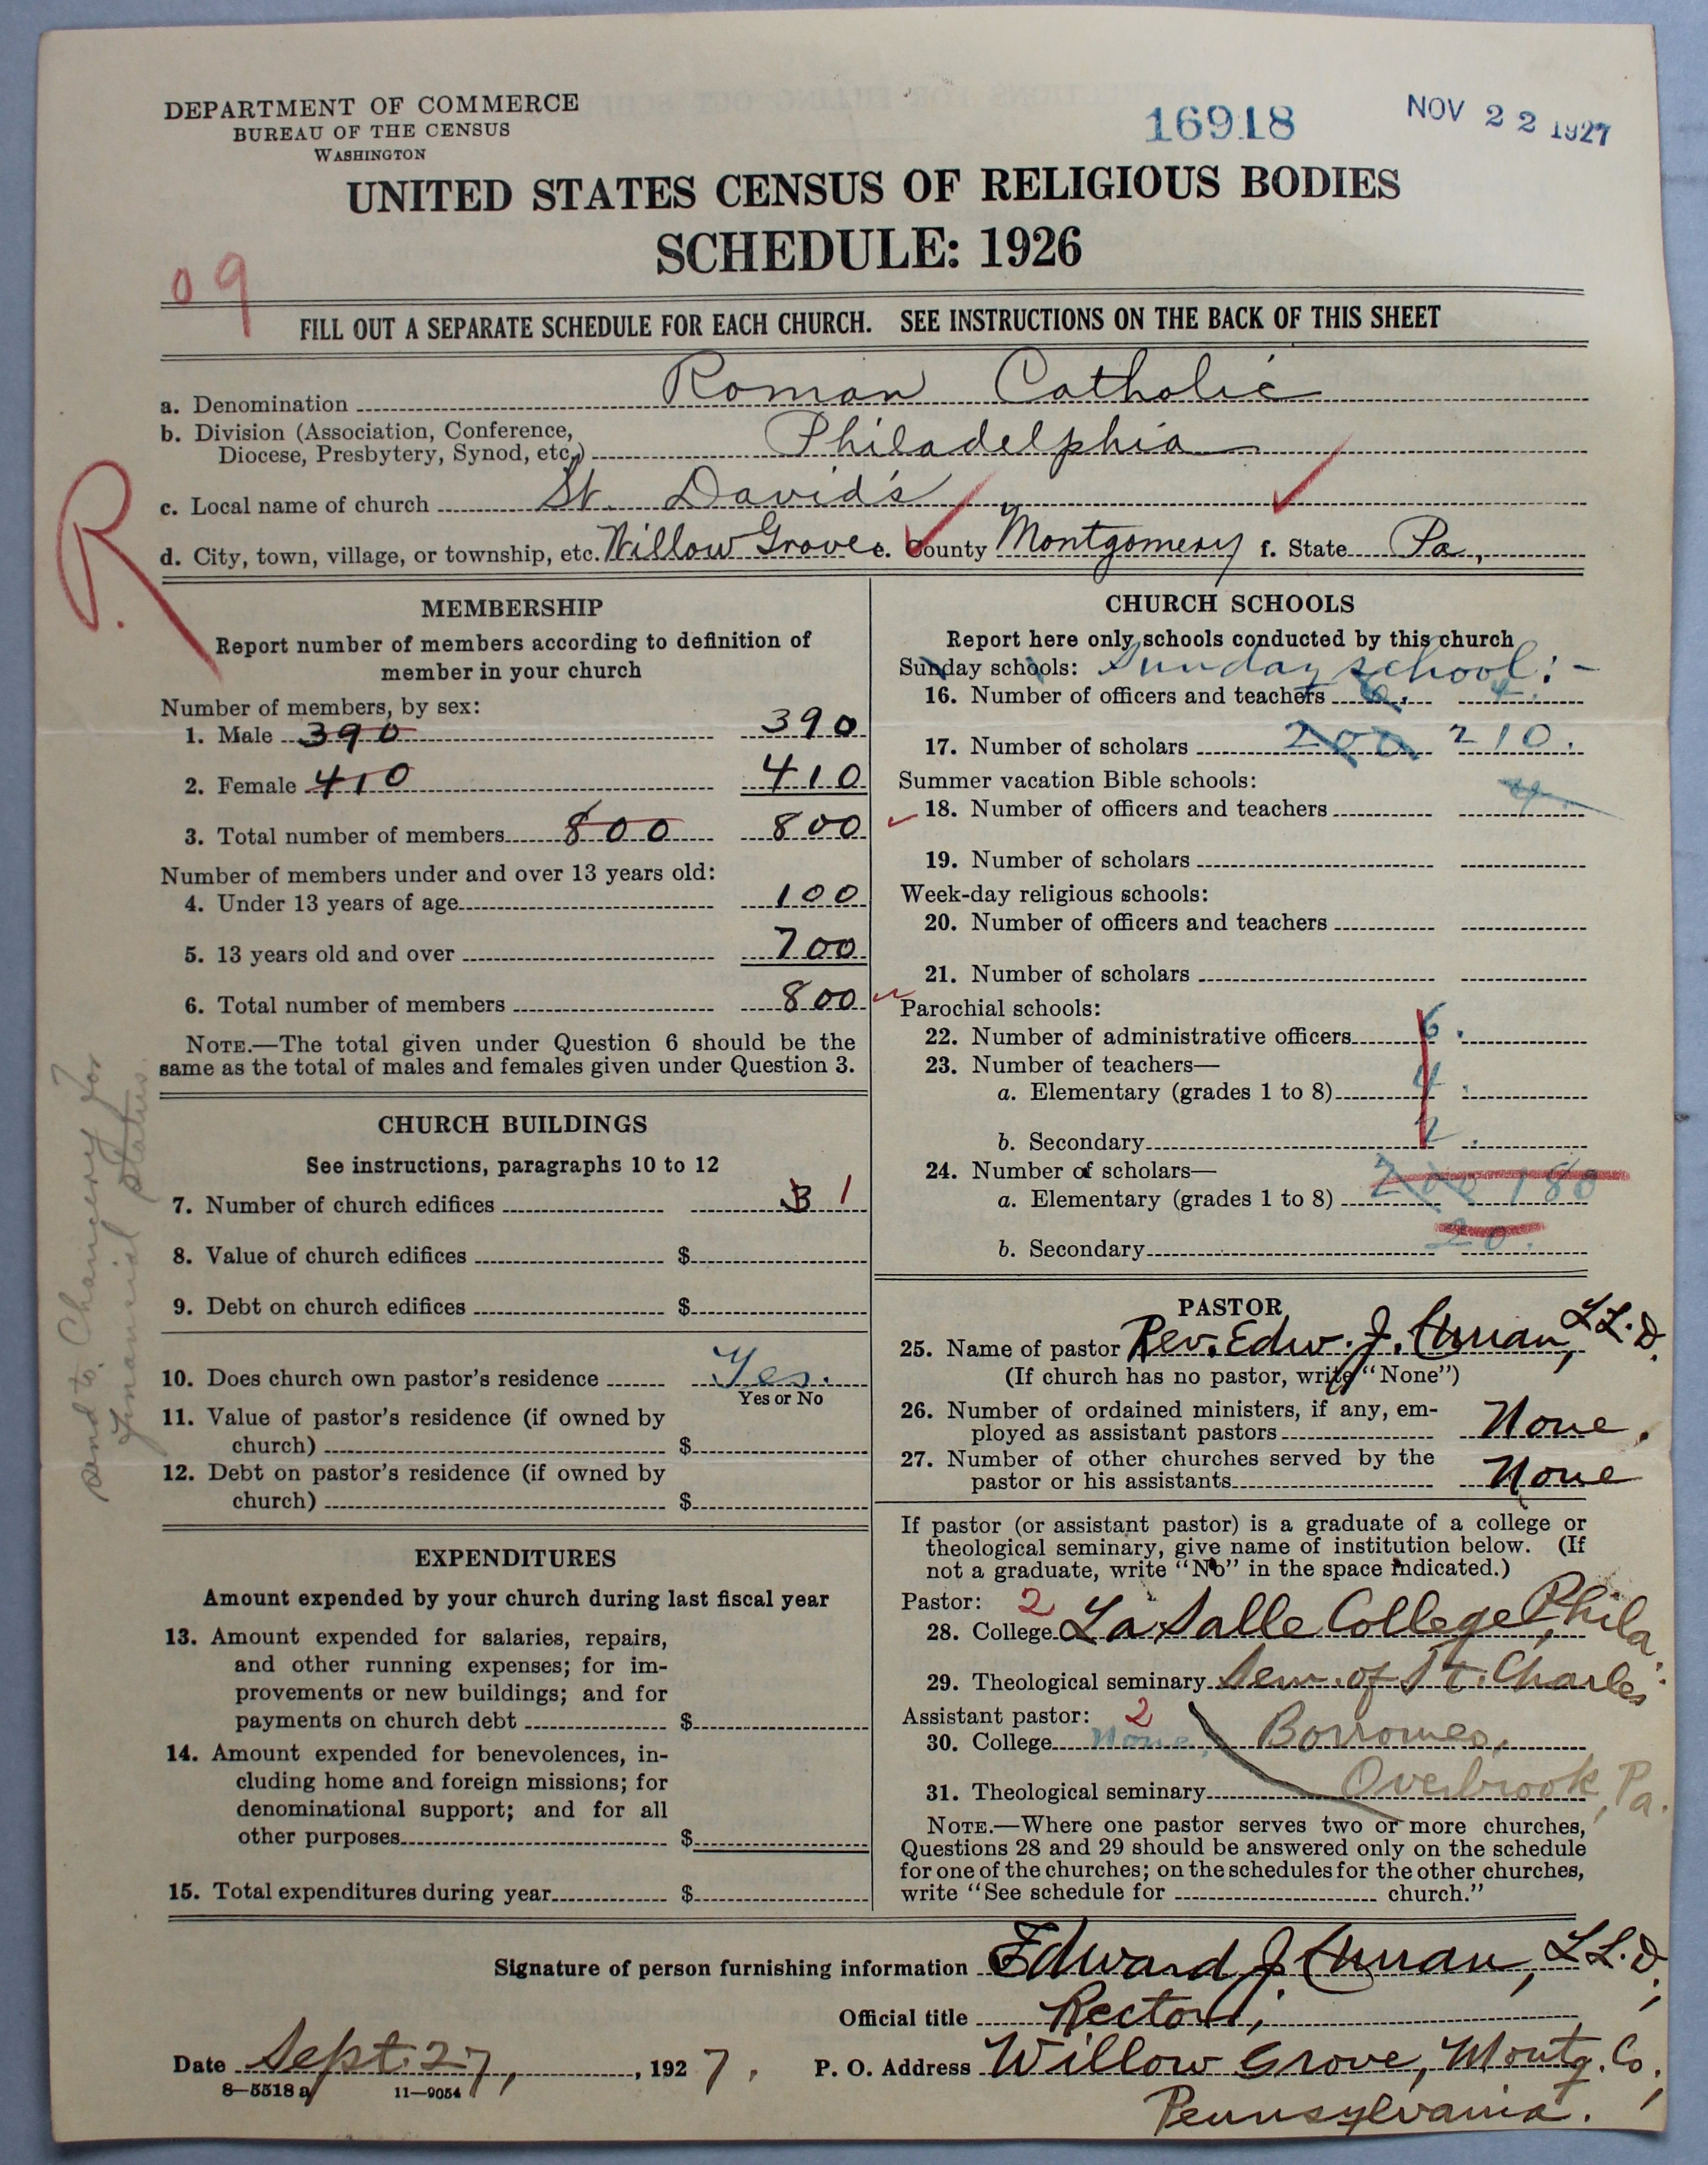 DEPARTMENT OF COMMERCE
BUREAU OF THE CENSUS
WASHINGTON
16918
NOV 22 1927
UNITED STATES CENSUS OF RELIGIOUS BODIES
SCHEDULE: 1926
09
FILL OUT A SEPARATE SCHEDULE FOR EACH CHURCH. SEE INSTRUCTIONS ON THE BACK OF THIS SHEET
a. Denomination Roman Catholic
b. Division (Association, Conference,
Diocese, Presbytery, Synod, etc.) Philadelphia
c. Local name of church St. David's
d. City, town, village, or township, etc. Willow Grove e. County Montgomery f. State Pa.,
R.
MEMBERSHIP
Report number of members according to definition of
member in your church
Number of members, by sex:
1. Male 390 390
2. Female 410 410
3. Total number of members 800 800
Number of members under and over 13 years old:
4. Under 13 years of age 100
5. 13 years old and over 700
6. Total number of members 800
NOTE.—The total given under Question 6 should be the
same as the total of males and females given under Question 3.
CHURCH BUILDINGS
See instructions, paragraphs 10 to 12
7. Number of church edifices 1
8. Value of church edifices $
9. Debt on church edifices $
10. Does church own pastor's residence Yes.
Yes or No
11. Value of pastor's residence (if owned by
church) $
12. Debt on pastor's residence (if owned by
church) $
EXPENDITURES
Amount expended by your church during last fiscal year
13. Amount expended for salaries, repairs,
and other running expenses; for im-
provements or new buildings; and for
payments on church debt $
14. Amount expended for benevolences, in-
cluding home and foreign missions; for
denominational support; and for all
other purposes $
15. Total expenditures during year $
Send to Chancery for
financial status.
CHURCH SCHOOLS
Report here only schools conducted by this church
Sunday schools: Sunday school:-
16. Number of officers and teachers 6. 4.
17. Number of scholars 200 210.
Summer vacation Bible schools:
18. Number of officers and teachers 4
19. Number of scholars
Week-day religious schools:
20. Number of officers and teachers
21. Number of scholars
Parochial schools:
22. Number of administrative officers 6.
23. Number of teachers—
a. Elementary (grades 1 to 8) 4.
b. Secondary 2.
24. Number of scholars—
a. Elementary (grades 1 to 8) 200 180
b. Secondary 20.
PASTOR
25. Name of pastor Rev. Edw. J. Curran, LL.D.
(If church has no pastor, write "None")
26. Number of ordained ministers, if any, em-
ployed as assistant pastors None.
27. Number of other churches served by the
pastor or his assistants None
If pastor (or assistant pastor) is a graduate of a college or
theological seminary, give name of institution below. (If
not a graduate, write "No" in the space indicated.)
Pastor: 2
28. College La Salle College, Phila.
29. Theological seminary Sem. of St. Charles
Assistant pastor: 2
30. College None, Borromeo,
31. Theological seminary Overbrook, Pa.
NOTE.—Where one pastor serves two or more churches,
Questions 28 and 29 should be answered only on the schedule
for one of the churches; on the schedules for the other churches,
write "See schedule for church."
Signature of person furnishing information Edward J. Curran, LL.D.,
Official title Rector,
Date Sept. 27, , 1927. P. O. Address Willow Grove, Montg. Co.,
8—5518 a 11—9054
Pennsylvania.